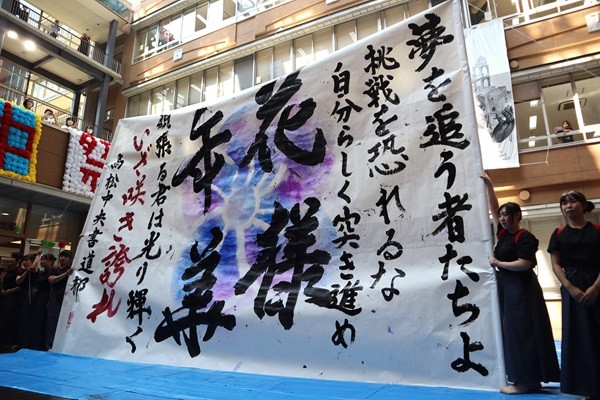 夢を追う者たちよ
挑戦を恐れるな
自分らしく突き進め
花様
年華
頑張る君は光り輝く
いざ咲き誇れ
高松中央書道部